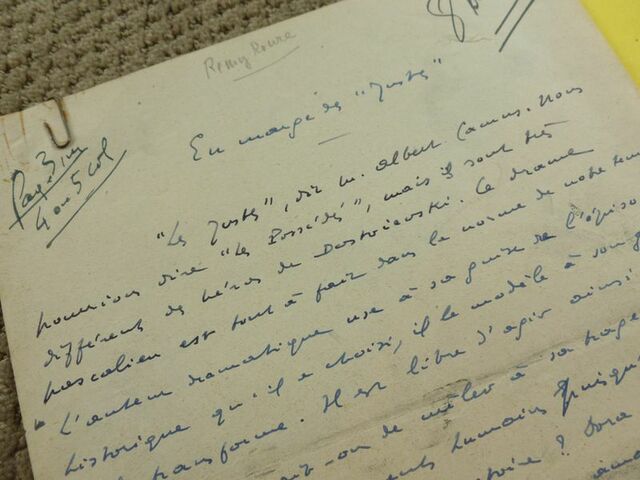 Remy Roure
En marge des "Justes"
Page 3,
4 ou 5 col
"Les Justes", dit M. Albert Camus. Nous
pourrions dire "Les Possédés", mais ils sont très
différents des héros de Dostoïewski. Ce drame
pascalien est tout à fait dans la norme de notre
L'auteur dramatique use à sa guise de l'épiso
historique qu'il a choisi, il le modèle à son
transforme. Il est libre d'agir ainsi
-on de mêler à sa
humains puisqu
? Dora